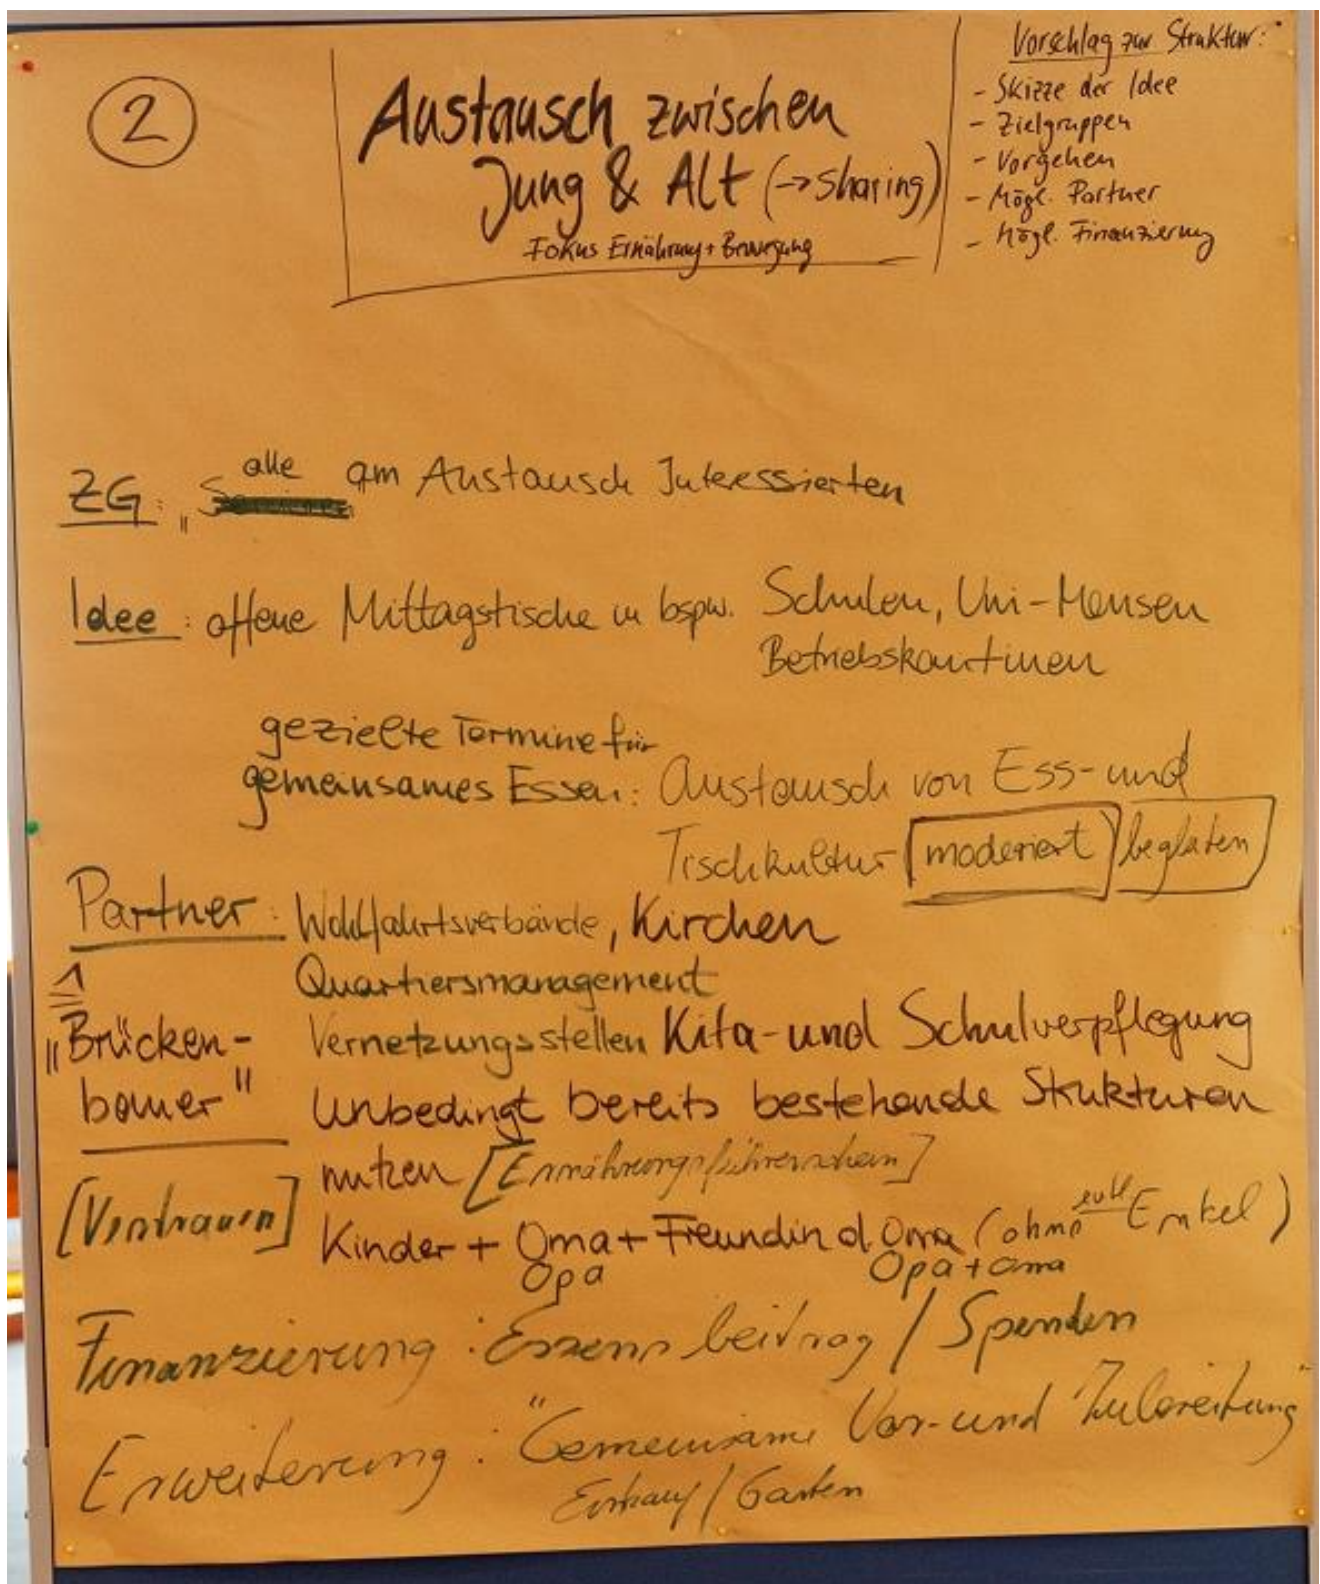 2
Austausch zwischen
Jung & Alt (→ sharing)
Fokus Ernährung + Bewegung
Vorschlag zur Struktur:
- Skizze der Idee
- Zielgruppen
- Vorgehen
- Mögl. Partner
- Mögl. Finanzierung
ZG: „ alle am Austausch Interessierten
Idee: offene Mittagstische in bspw. Schulen, Uni-Mensen
Betriebskantinen
gezielte Termine für
gemeinsames Essen: Austausch von Ess- und
Tischkultur moderiert begleiten
Partner: Wohlfahrtsverbände, Kirchen
Quartiersmanagement
„Brücken- Vernetzungsstellen Kita- und Schulverpflegung
bauer" Unbedingt bereits bestehende Strukturen
nutzen [Ernährungsführerschein]
[Vertrauen]
Kinder + Oma + Freundin d. Oma (ohne evtl Enkel)
Opa Opa + Oma
Finanzierung: Essensbeitrag / Spenden
Erweiterung: "Gemeinsame Vor- und Zubereitung"
Einkauf / Garten